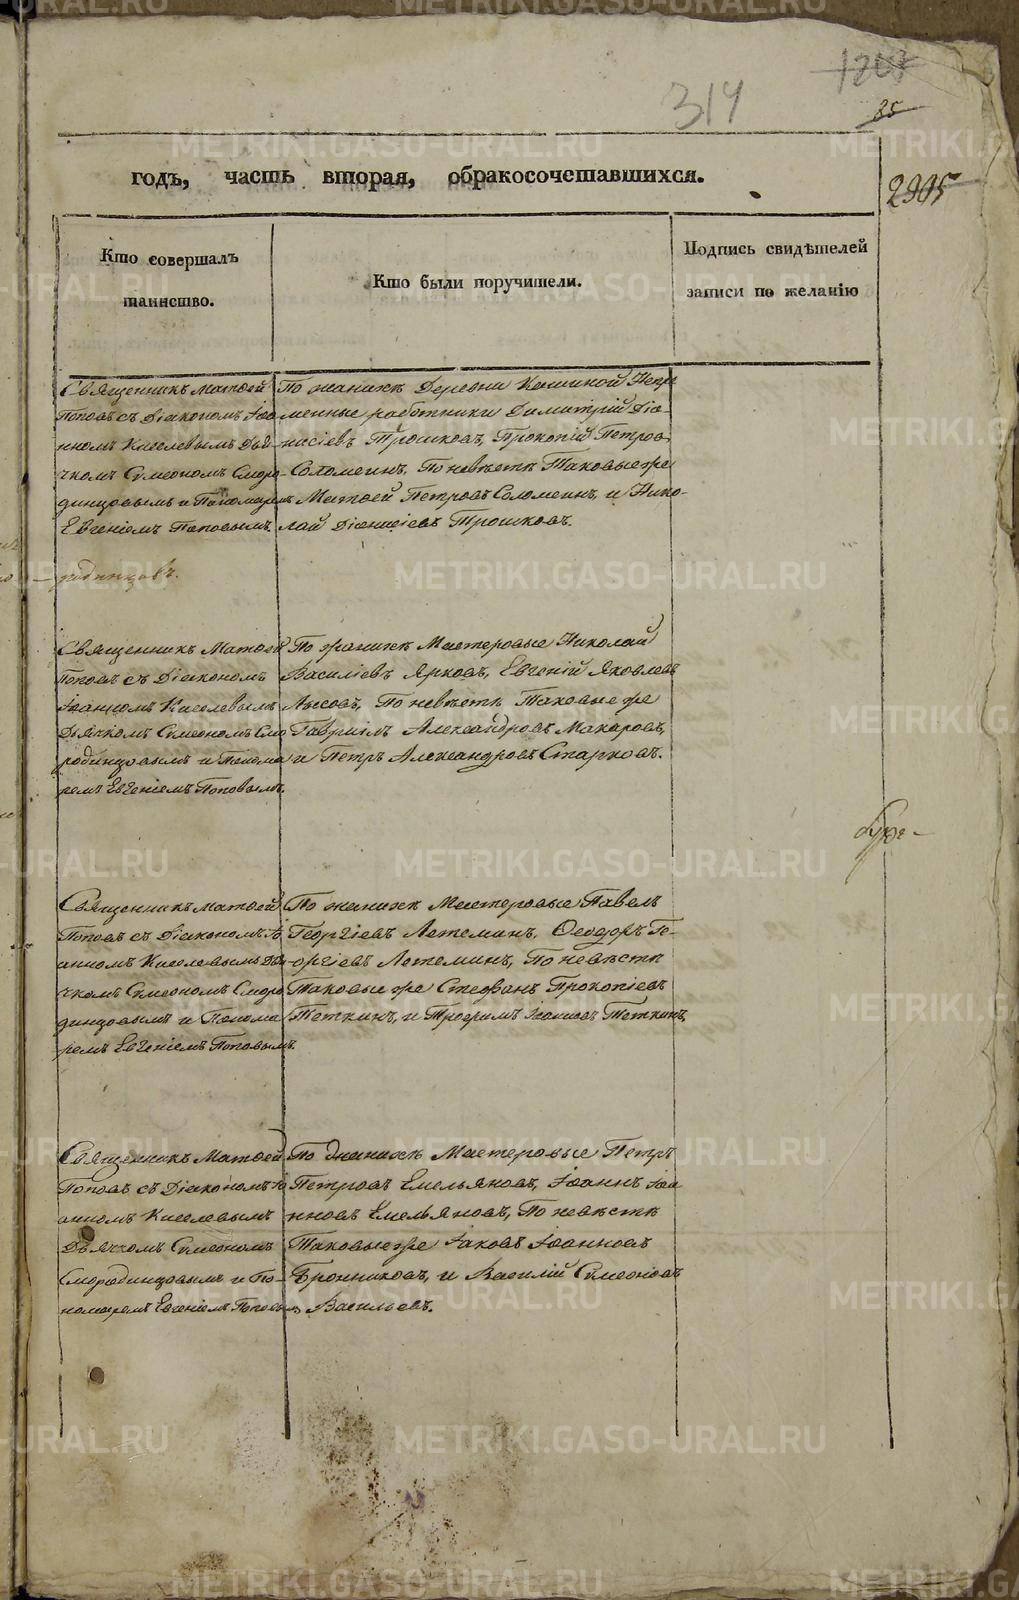 1203
314
85
2905
годъ, часть вторая, обракосочетавшихся.
Кто совершалъ
таинство.
Кто были поручители.
Подпись свидѣтелей
записи по желанію
Священникъ Матөей
Поповъ съ Діакономъ Іоа-
нномъ Киселевымъ Дья-
чкомъ Сѵмеономъ Сморо-
динцовымъ и Пономаремъ
Евгеніемъ Поповымъ.
По женихѣ Деревни Калиной Непре
менные работники Димитрій Діо-
нисіевъ Трошковъ, Прокопій Петровъ
Соломеинъ, По невѣстѣ Таковые же
Матөей Петровъ Соломеинъ, и Нико-
лай Діонисіевъ Трошковъ.
Священникъ Матөей
Поповъ съ Діакономъ
Іоанномъ Киселевымъ
Дьячкомъ Сѵмеономъ Смо
родинцовымъ и Понома
ремъ Евгеніемъ Поповымъ.
По женихѣ Мастеровые Николай
Василіевъ Ярковъ, Евгеній Яковлевъ
Лысовъ, По невѣстѣ Таковые же
Гавріилъ Александровъ Макаровъ,
и Петръ Александровъ Старковъ.
Священникъ Матөей
Поповъ съ Діакономъ Іо
анномъ Киселевымъ Дья
чкомъ Сѵмеономъ Сморо
динцовымъ и Понома
ремъ Евгеніемъ Поповымъ.
По женихѣ Мастеровые Павелъ
Георгіевъ Летеминъ, Өеодоръ Ге-
оргіевъ Летеминъ, По невѣстѣ
Таковые же Стефанъ Прокопіевъ
Теткинъ, и Трофимъ Теткинъ,
Священникъ Матөей
Поповъ съ Діакономъ Іо
анномъ Киселевымъ
Дьячкомъ Сѵмеономъ
Смородинцовымъ и По-
номаремъ Евгеніемъ Поповым
По женихѣ Мастеровые Петръ
Петровъ Емельяновъ, Іоаннъ Іоа
нновъ Емельяновъ, По невѣстѣ
Таковые же Іаковъ Іоанновъ
Бронниковъ, и Василій Сѵмеоновъ
Васильевъ.
METRIKI.GASO-URAL.RU